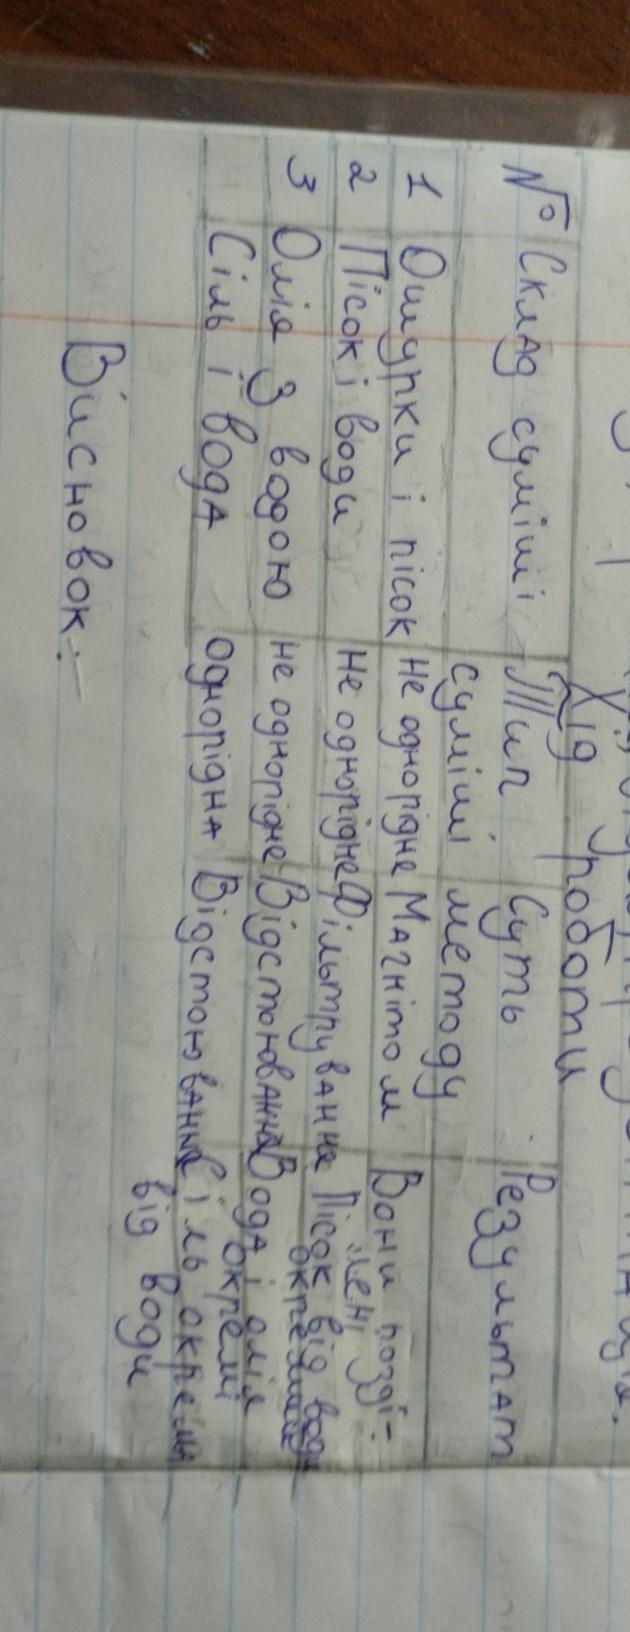 Хід роботи
№ Склад суміші Тип суміші Суть методу Результат
1 Ошурки і пісок не однорідне Магнітом Вони позді-лені
2 Пісок і води не однорідне Фільтрування Пісок від води окремо
3 Олія з водою не однорідне Відстоювання Вода і олія окремі
Сіль і вода однорідна Відстоювання Сіль окрема від води
Висновок: